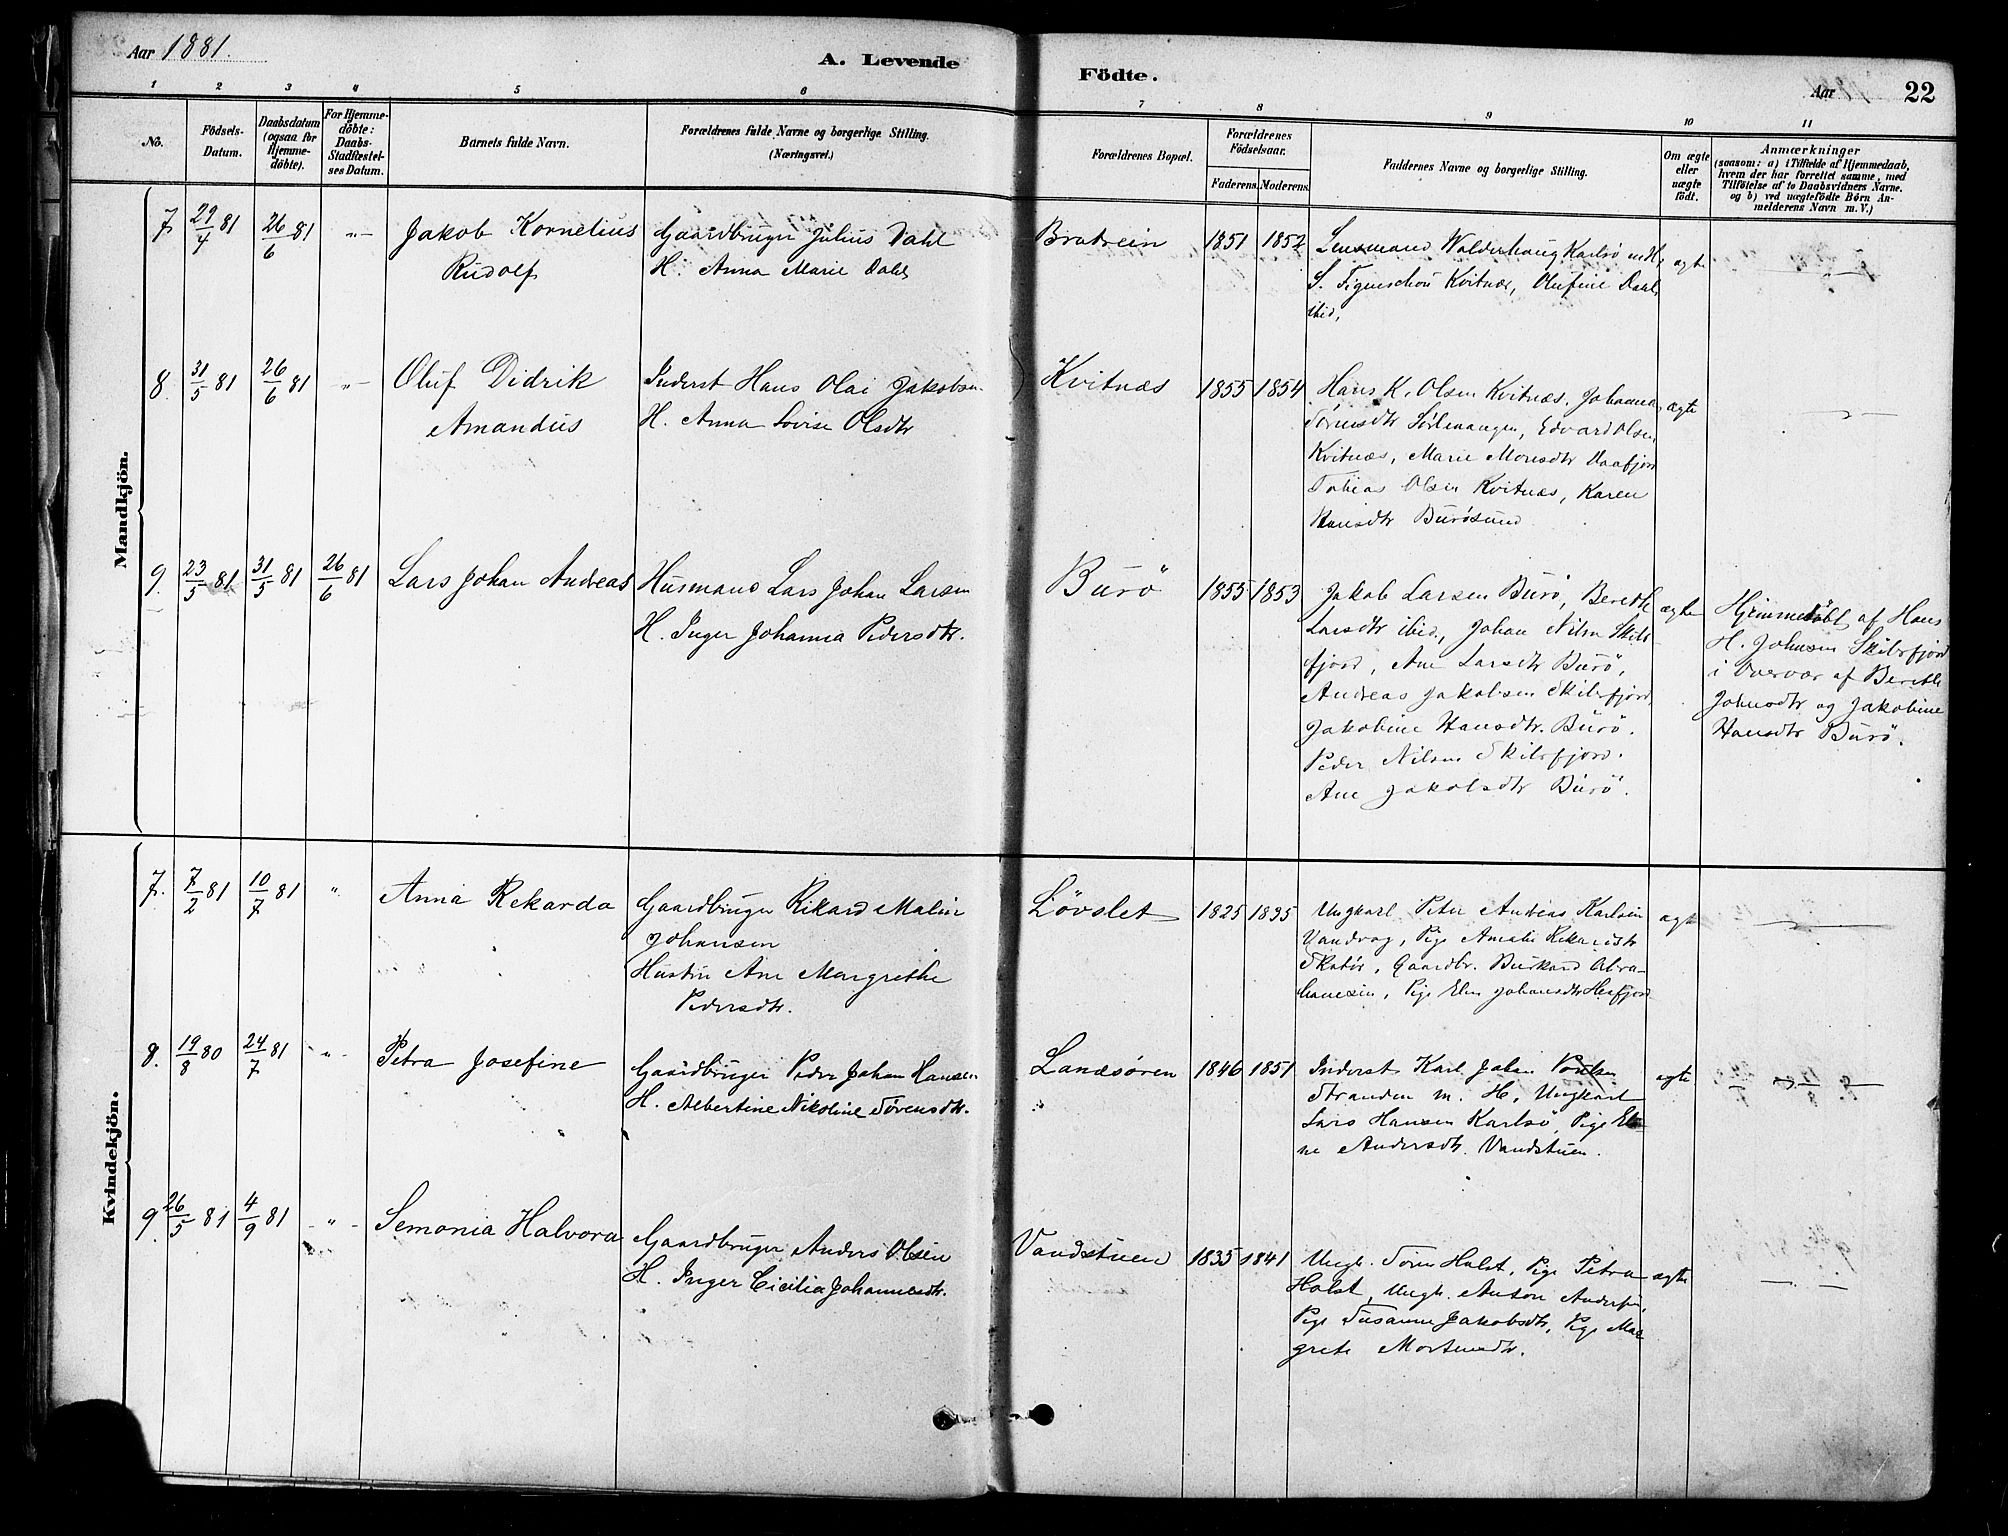 Aar 1881.
A. Levende Födte.
Aar
22
1 2 3 4 5 6 7 8 9 10 11
No.
Födsels-Datum.
Daabsdatum (ogsaa for Hjemme-döbte).
For Hjemme-döbte: Daabs-Stadfæstel-ses Datum.
Barnets fulde Navn.
Forældrenes fulde Navne og borgerlige Stilling.
(Næringsvei.)
Forældrenes Bopæl.
Forældrenes Födselsaar.
Faderens. Moderens.
Faddernes Navne og borgerlige Stilling.
Om ægte eller uægte födt.
Anmærkninger
(saasom: a) i Tilfælde af Hjemmedaab,
hvem der har forrettet samme, med
Tilföielse af to Daabsvidners Navne.
og b) ved uægtefödte Börn An-
melderens Navn m. V.)
Mandkjön.
7 29/4 81 26/6 81 -"- Jakob Kornelius
Rudolf
Gaardbruger Julius Dahl
H. Anna Marie Dahl
Bratrein 1851 1852
Lensmand Walderhaug Karlsö m H,
S. Figenschou Kvitnæs, Olufine Dahl
ibid,
ægte
8. 31/5 81 26/6 81 -"- Oluf Didrik
Amandus
Inderst Hans Olai Jakobsen
H. Anna Lovise Olsdtr
Kvitnæs 1855 1854
Hans K. Olsen Kvitnæs, Johanna
Sörensdtr Sörlenangen, Edvard Olsen
Kvitnæs, Marie Monsdtr Vaafjord
Tobias Olsen Kvitnæs, Karen
Hansdtr Burösund
ægte
9. 23/5 81 31/5 81 26/6 81 Lars Johan Andreas
Husmand Lars Johan Larsen
H. Inger Johanna Pedersdtr.
Burö 1855 1853
Jakob Larsen Burö, Berethe
Larsdtr ibid, Johan Nilsen Skibs-
fjord, Ane Larsdtr Burö,
Andreas Jakobsen Skibsfjord
Jakobine Hansdtr. Burö.
Peder Nilsen Skibsfjord.
Ane Jakobsdtr Burö.
ægte
Hjemmedöbt af Hans
H. Johnsen Skibsfjord
i Overvær af Berethe
Johnsdtr og Jakobine
Hansdtr Burö.
Kvindekjön.
7. 7/2 81 10/7 81 " Anna Rekarda
Gaardbruger Rikard Malin
Johansen
Hustru Ane Margrethe
Pedersdtr.
Lövslet 1825 1835
Ungkarl Peter Andreas Karlsen
Vandvag, Pige Amalie Rikardsdtr
Skatör, Gaardbr. Burkard Abra-
hamsen, Pige Elen Johansdtr Hesfjord
ægte
8. 19/8 80 24/7 81 -"- Petra Josefine
Gaardbruger Peder Johan Hansen
H. Albertine Nikoline Sörensdtr.
Landsören 1846 1851
Inderst Karl Johan Poulsen
Stranden m. H, Ungkarl
Lars Hansen Karlsö, Pige Eli-
ne Andersdtr. Vandstuen.
ægte
9. 26/5 81 4/9 81 -"- Semonia Halvora
Gaardbruger Anders Olsen
H. Inger Cicilia Johannesdtr.
Vandstuen 1835 1841
Ungk. Sören Holst, Pige Petra
Holst, Ungk. Anton Andersen,
Pige Susanna Jakobsdtr, Pige Mar
grete Mortensdtr.
ægte